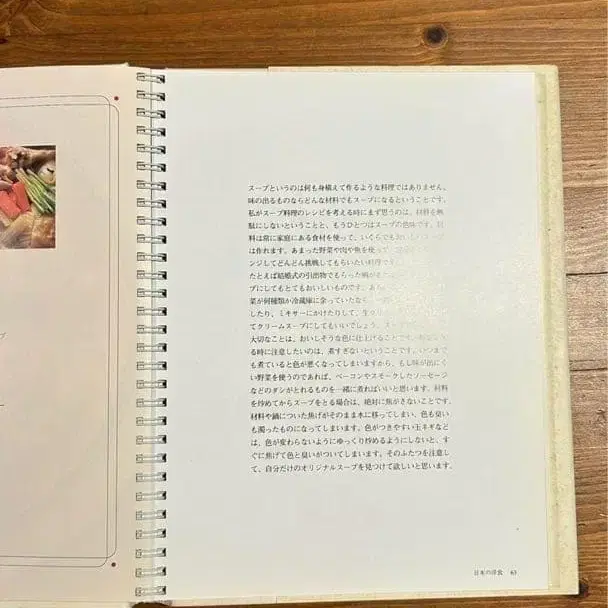 スープというのは何も身構えて作るような料理ではありません。
味の出るものならどんな材料でもスープになるということです。
私がスープ料理のレシピを考える時にまず思うのは、材料を無
駄にしないということと、もうひとつはスープの色味です。
料は常に家庭にある食材を使って、いくらでもおいしいスープ
は作れます。あまった野菜や肉や魚を使って、
ンジしてどんどん挑戦してもらいたい料理です。
たとえば結婚式の引出物でもらった鯛が
プにしてもとてもおいしいものです。
菜が何種類か冷蔵庫に余っていたなら、
したり、ミキサーにかけたりして、生ク
てクリームスープにしてもいいでしょう。
大切なことは、おいしそうな色に仕上げることです。
る時に注意したいのは、煮すぎないということです。いつまで
も煮ていると色が悪くなってしまいますから、もし味が出にく
い野菜を使うのであれば、ベーコンやスモークしたソーセージ
などのダシがとれるものを一緒に煮ればいいと思います。材料
を炒めてからスープをとる場合は、絶対に焦がさないことです。
材料や鍋についた焦げがそのまま水に移ってしまい、色も臭い
も濁ったものになってしまいます。色がつきやすい玉ネギなど
は、色が変わらないようにゆっくり炒めるようにしないと、す
ぐに焦げて色と臭いがついてしまいます。そのふたつを注意し
て、自分だけのオリジナルスープを見つけて欲しいと思います。
日本の洋食 63